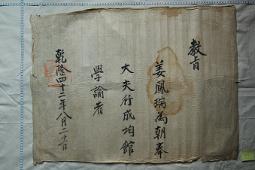 教旨
姜鳳瑞為朝奉
大夫行成均館
學諭者
乾隆四十二年八月二十日